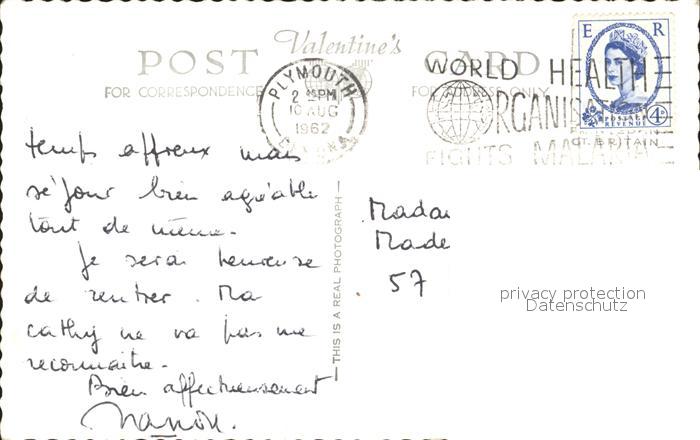 Valentine's
POST CARD
FOR CORRESPONDENCE
FOR ADDRESS ONLY
PLYMOUTH
2 PM
10 AUG
1962
DEVON
WORLD HEALTH
ORGANISATION
FIGHTS MALARIA
E R
POSTAGE
REVENUE
4D
GT. BRITAIN
temps affreux mais
séjour bien agréable
tout de même.
Je serai heureuse
de rentrer. Ma
cathy ne va pas me
reconnaitre.
Bien affectueusement
THIS IS A REAL PHOTOGRAPH
Madam
Made
57
privacy protection
Datenschutz